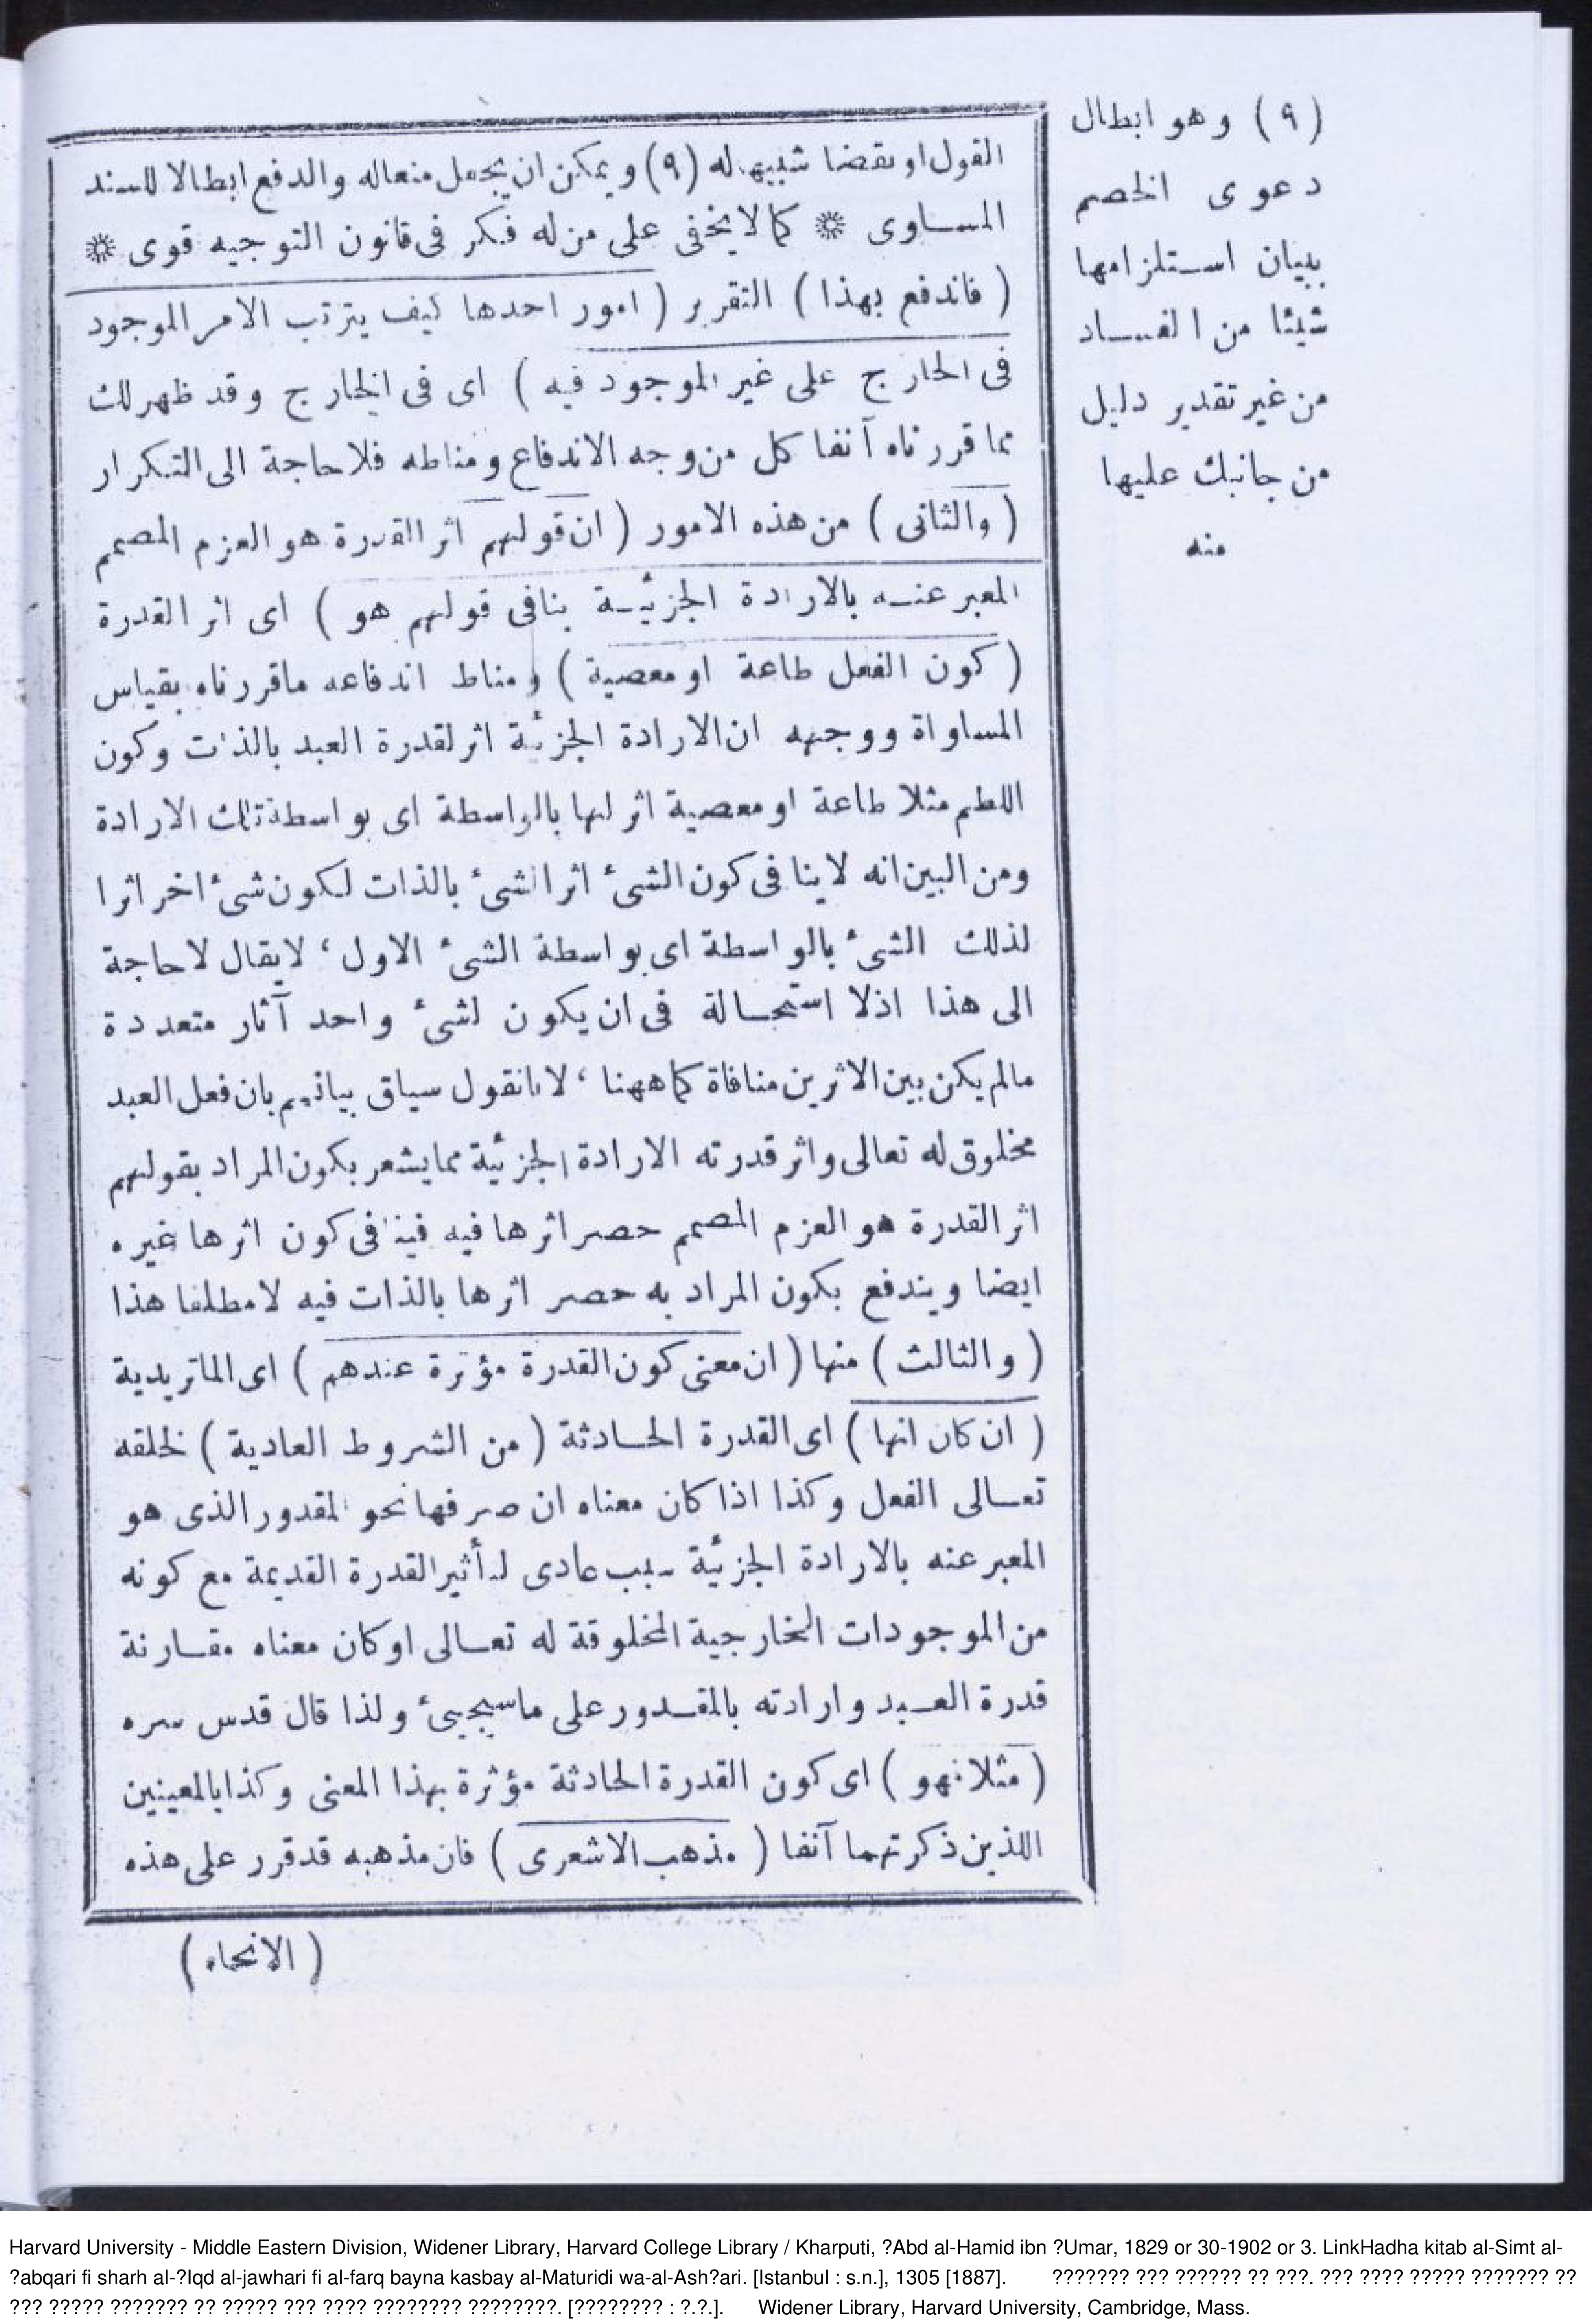 القول او نقضا شبيها له (٩) و يمكن ان يجعل منعاله والدفع ابطالا للسند
المساوى * كما لا يخفى على من له فكر فى قانون التوجيه قوى *
( فاندفع بهذا ) التقرير ( امور احدها كيف يترتب الامر الموجود
فى الخارج على غير الموجود فيه ) اى فى الخارج وقد ظهر لك
مما قررناه آنفا كل من وجه الاندفاع ومناطه فلا حاجة الى التكرار
( والثانى ) من هذه الامور ( ان قولهم اثر القدرة هو العزم المصمم
المعبر عنه بالارادة الجزئية ينافى قولهم هو ) اى اثر القدرة
( كون الفعل طاعة او معصية ) ومناط اندفاعه ماقررناه بقياس
المساواة ووجهه ان الارادة الجزئية اثر لقدرة العبد بالذات وكون
اللطم مثلا طاعة او معصية اثر لها بالواسطة اى بواسطة تلك الارادة
ومن البين انه لاينافى كون الشئ اثر الشئ بالذات لكون شئ اخر اثرا
لذلك الشئ بالواسطة اى بواسطة الشئ الاول ، لايقال لاحاجة
الى هذا اذلا استحالة فى ان يكون لشئ واحد آثار متعددة
مالم يكن بين الاثرين منافاة كماههنا ، لانانقول سياق بيانهم بان فعل العبد
مخلوق له تعالى واثر قدرته الارادة الجزئية مما يشعر بكون المراد بقولهم
اثر القدرة هو العزم المصمم حصر اثرها فيه فينافى كون اثرها غيره
ايضا ويندفع بكون المراد به حصر اثرها بالذات فيه لا مطلقا هذا
( والثالث ) منها ( ان معنى كون القدرة مؤثرة عندهم ) اى الماتريدية
( ان كان انها ) اى القدرة الحادثة ( من الشروط العادية ) لخلقه
تعالى الفعل وكذا اذا كان معناه ان صرفها نحو المقدور الذى هو
المعبر عنه بالارادة الجزئية سبب عادى لتأثير القدرة القديمة مع كونه
من الموجودات الخارجية المخلوقة له تعالى او كان معناه مقارنة
قدرة العبد وارادته بالمقدور على ماسيجيئ ولذا قال قدس سره
( مثلا فهو ) اى كون القدرة الحادثة مؤثرة بهذا المعنى وكذا بالمعينين
اللذين ذكرتهما آنفا ( مذهب الاشعرى ) فان مذهبه قدقرر على هذه
( الانحاء )
(٩) وهو ابطال
دعوى الخصم
ببيان استلزامها
شيئا من الفساد
من غير تقدير دليل
من جانبك عليها
منه
Harvard University - Middle Eastern Division, Widener Library, Harvard College Library / Kharputi, ?Abd al-Hamid ibn ?Umar, 1829 or 30-1902 or 3. LinkHadha kitab al-Simt al-
?abqari fi sharh al-?Iqd al-jawhari fi al-farq bayna kasbay al-Maturidi wa-al-Ash?ari. [Istanbul : s.n.], 1305 [1887]. ??????? ??? ?????? ?? ???. ??? ???? ????? ??????? ??
??? ????? ??????? ?? ????? ??? ???? ???????? ????????. [???????? : ?.?.]. Widener Library, Harvard University, Cambridge, Mass.